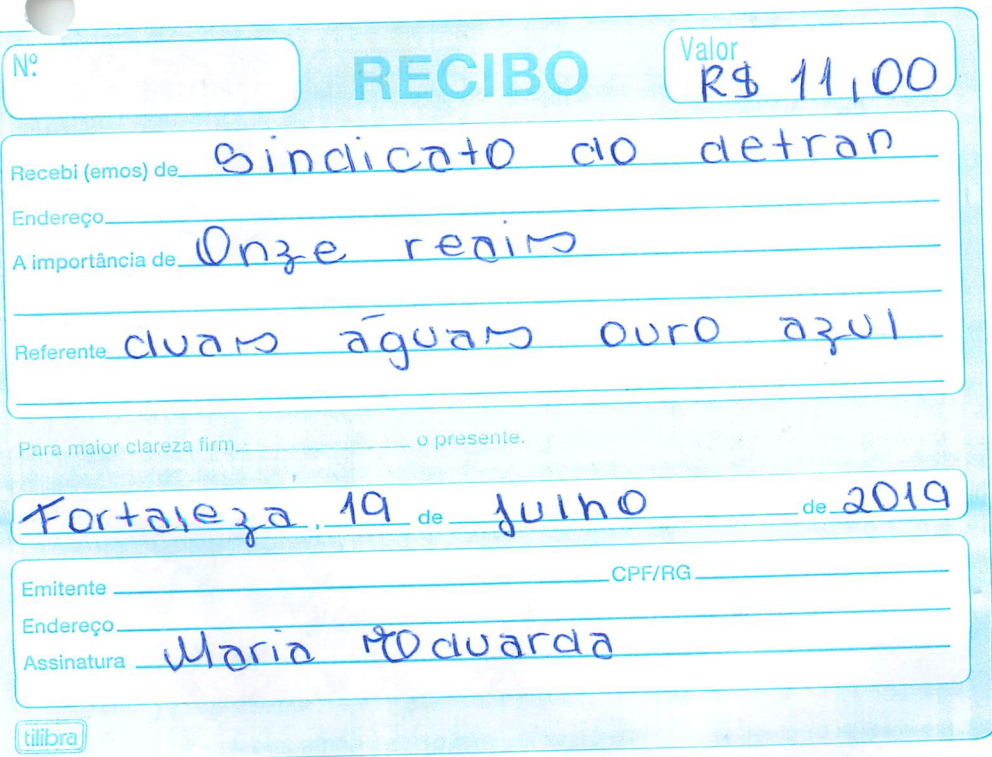 Nº
RECIBO
Valor
R$ 11,00
Recebi (emos) de Sindicato do detran
Endereço
A importância de Onze reais
Referente duas águas ouro azul
Para maior clareza firm o presente.
Fortaleza, 19 de Julho de 2019
Emitente CPF/RG
Endereço
Assinatura Maria Eduarda
tilibra